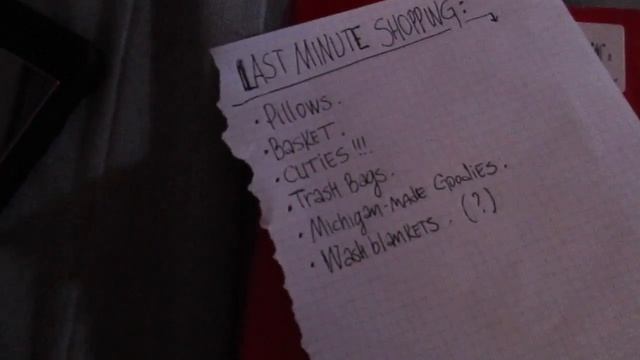 LAST MINUTE SHOPPING:
• Pillows.
• Basket.
• CUTIES!!!
• Trash Bags.
• Michigan-made Goodies.
• Wash blankets. (?)